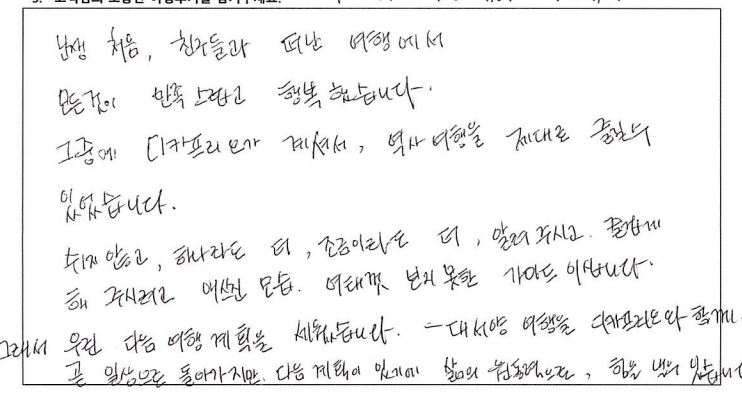 난생 처음, 친구들과 떠난 여행에서
모든것이 만족스럽고 행복했습니다.
그중에 디카프리오가 계셔서, 역사 여행을 제대로 즐길수
있었습니다.
쉬지 않고, 하나라도 더, 조금이라도 더, 알려 주시고. 즐겁게
해 주시려고 애쓰신 모습. 여태껏 보지 못한 가이드 이십니다.
그래서 우린 다음 여행 계획을 세웠습니다. - 대서양 여행을 디카프리오와 함께.
곧 일상으로 돌아가지만, 다음 계획이 있기에 삶의 원동력으로, 힘을 낼수 있습니다